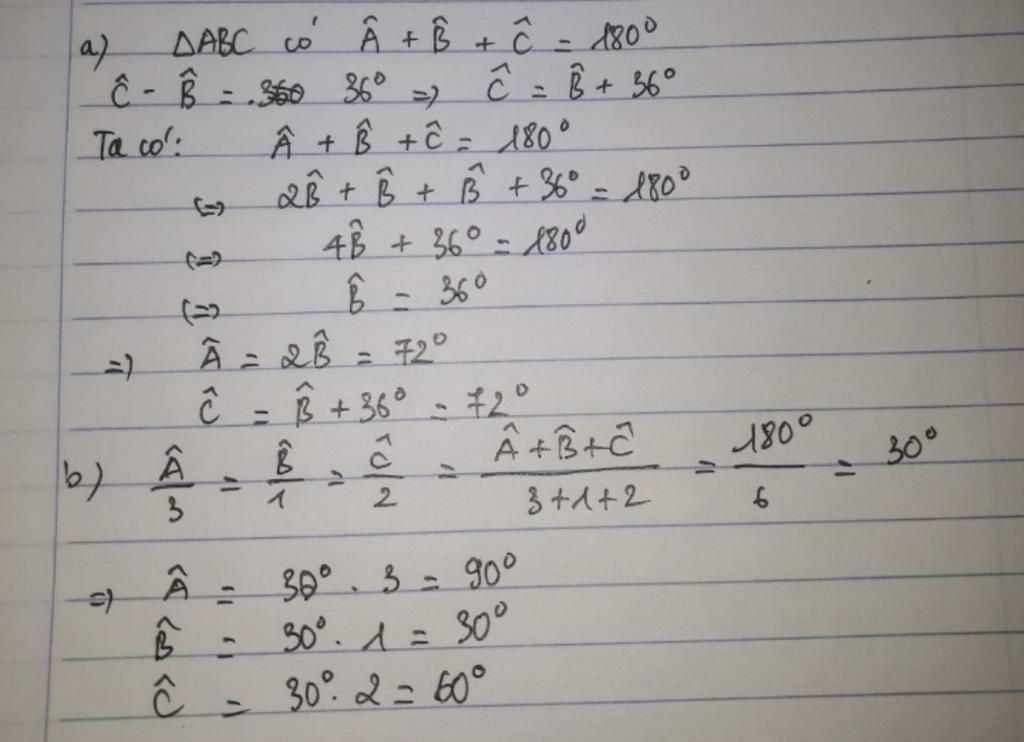 a) ΔABC có Â + B̂ + Ĉ = 180°
Ĉ - B̂ = 36° => Ĉ = B̂ + 36°
Ta có: Â + B̂ + Ĉ = 180°
(=) 2B̂ + B̂ + B̂ + 36° = 180°
(=) 4B̂ + 36° = 180°
(=) B̂ = 36°
=) Â = 2B̂ = 72°
Ĉ = B̂ + 36° = 72°
b) Â/3 = B̂/1 = Ĉ/2 = (Â + B̂ + Ĉ)/(3+1+2) = 180°/6 = 30°
=) Â = 30° . 3 = 90°
B̂ = 30° . 1 = 30°
Ĉ = 30° . 2 = 60°